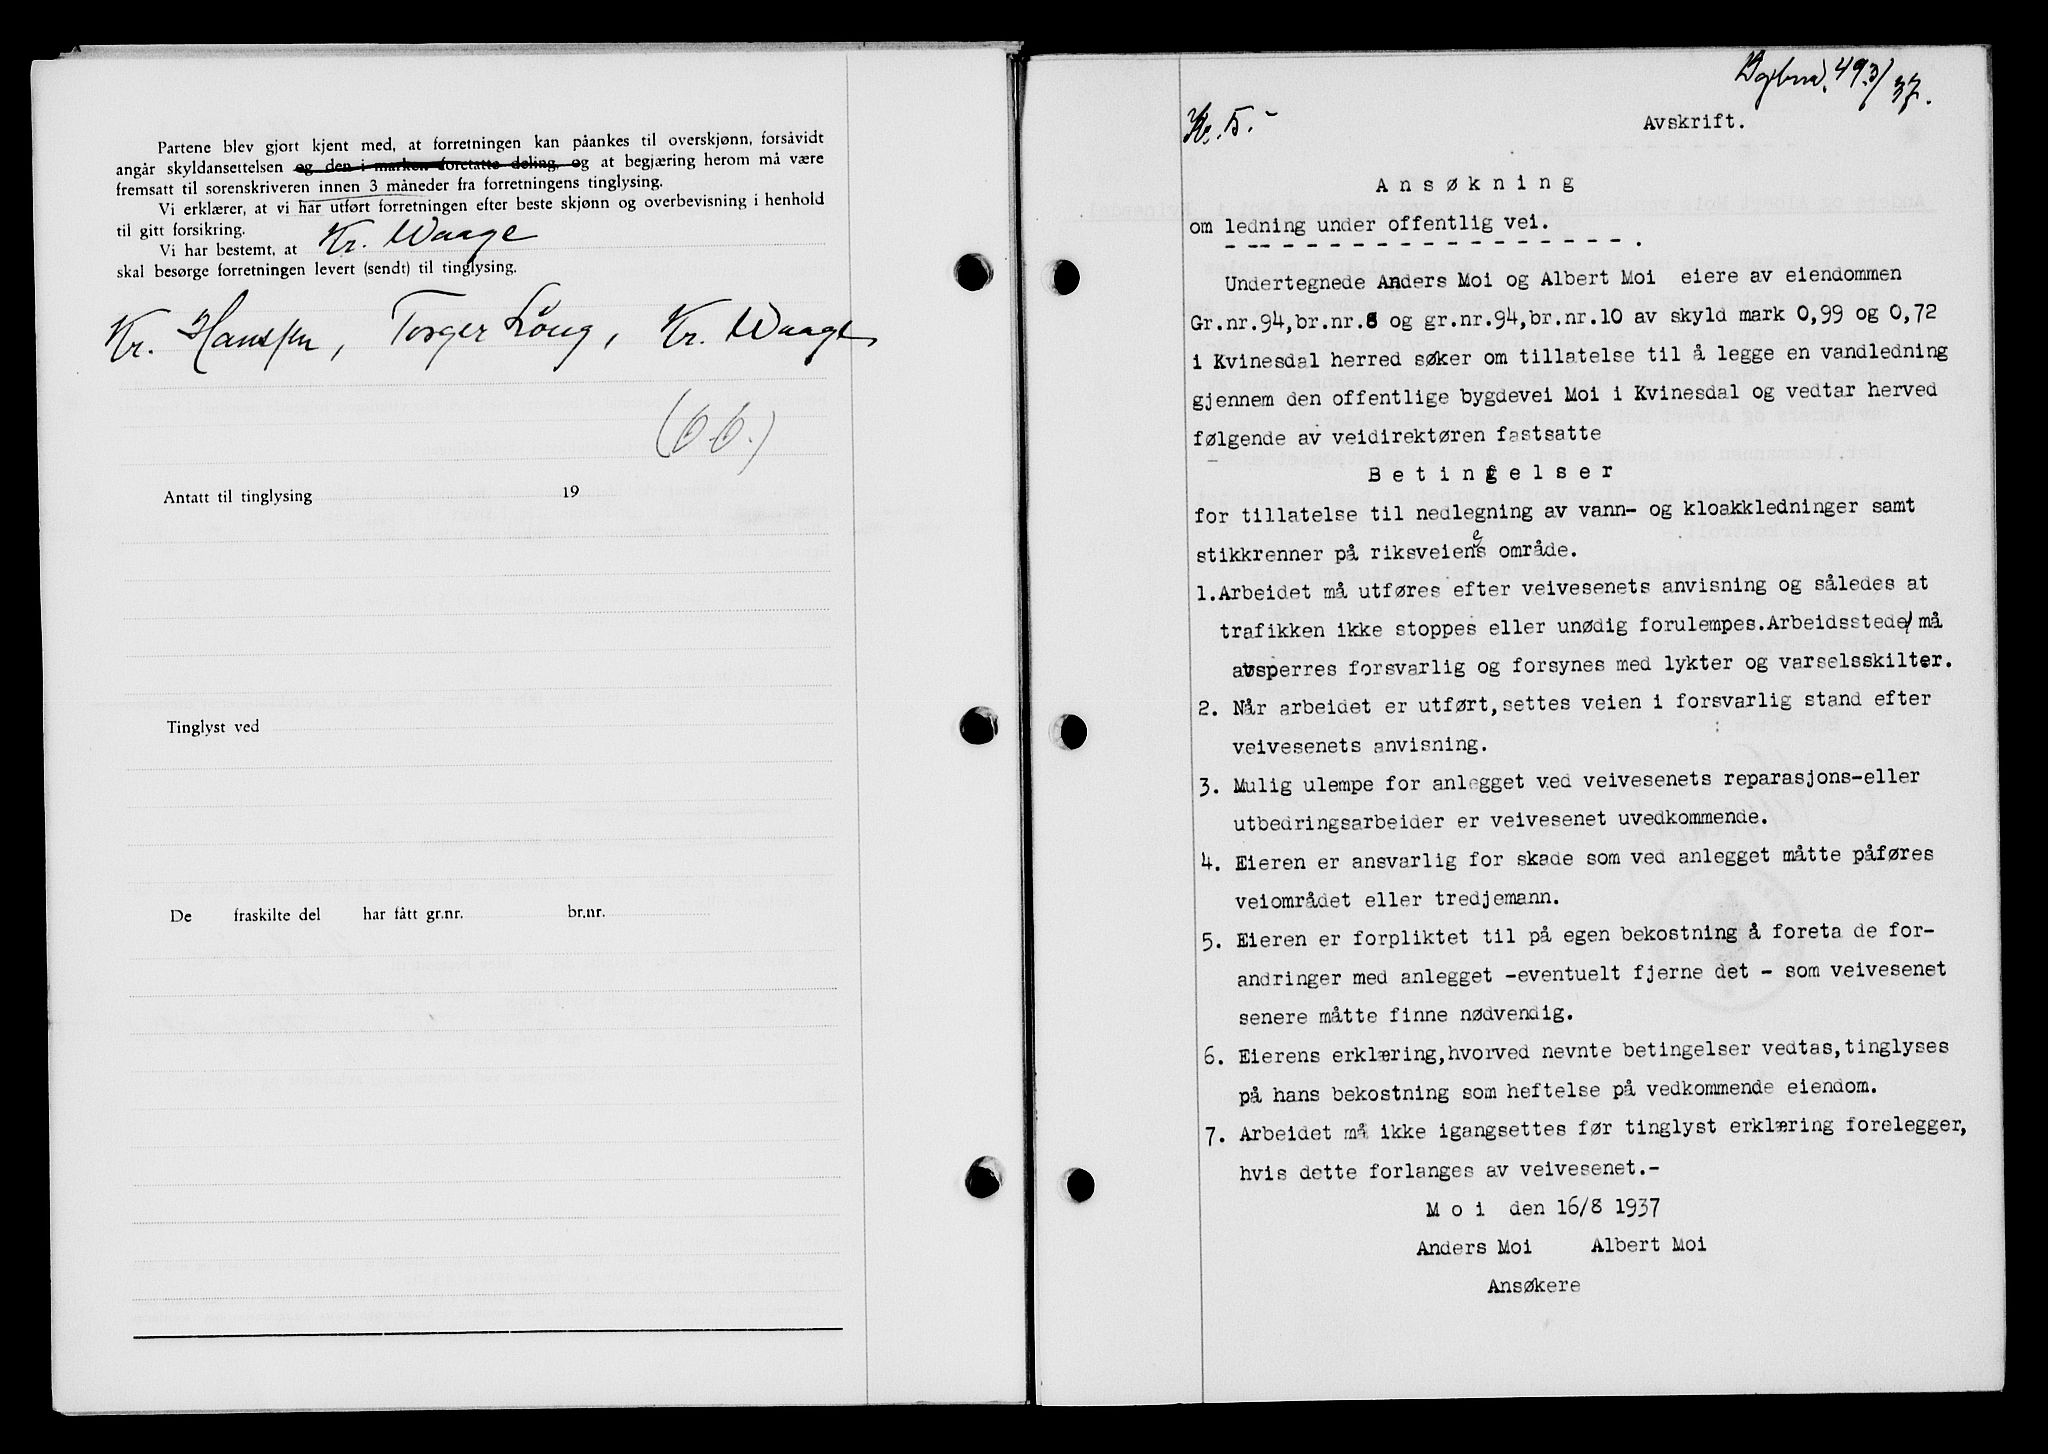 Partene blev gjort kjent med, at forretningen kan påankes til overskjønn, forsåvidt
angår skyldansettelsen og den i marken foretatte deling, og at begjæring herom må være
fremsatt til sorenskriveren innen 3 måneder fra forretningens tinglysing.
Vi erklærer, at vi har utført forretningen efter beste skjønn og overbevisning i henhold
til gitt forsikring.
Vi har bestemt, at Kr. Waage
skal besørge forretningen levert (sendt) til tinglysing.
Kr. Hanssen, Torger Kr. Waage
Antatt til tinglysing 19
Tinglyst ved
De fraskilte del har fått gr.nr. br.nr.
Dagbnr. 493/37.
Kr. 5.-
Avskrift.
Ansøkning
om ledning under offentlig vei.
Undertegnede Anders Moi og Albert Moi eiere av eiendommen
Gr.nr.94,br.nr.8 og gr.nr.94,br.nr.10 av skyld mark 0,99 og 0,72
i Kvinesdal herred søker om tillatelse til å legge en vandledning
gjennem den offentlige bygdevei Moi i Kvinesdal og vedtar herved
følgende av veidirektøren fastsatte
Betingelser
for tillatelse til nedlegning av vann- og kloakkledninger samt
stikkrenner på riksveienes område.
1. Arbeidet må utføres efter veivesenets anvisning og således at
trafikken ikke stoppes eller unødig forulempes. Arbeidsstedet må
avsperres forsvarlig og forsynes med lykter og varselsskilter.
2. Når arbeidet er utført, settes veien i forsvarlig stand efter
veivesenets anvisning.
3. Mulig ulempe for anlegget ved veivesenets reparasjons-eller
utbedringsarbeider er veivesenet uvedkommende.
4. Eieren er ansvarlig for skade som ved anlegget måtte påføres
veiområdet eller tredjemann.
5. Eieren er forpliktet til på egen bekostning å foreta de for-
andringer med anlegget -eventuelt fjerne det - som veivesenet
senere måtte finne nødvendig.
6. Eierens erklæring, hvorved nevnte betingelser vedtas, tinglyses
på hans bekostning som heftelse på vedkommende eiendom.
7. Arbeidet må ikke igangsettes før tinglyst erklæring forelegger,
hvis dette forlanges av veivesenet.-
Moi den 16/8 1937
Anders Moi Albert Moi
Ansøkere